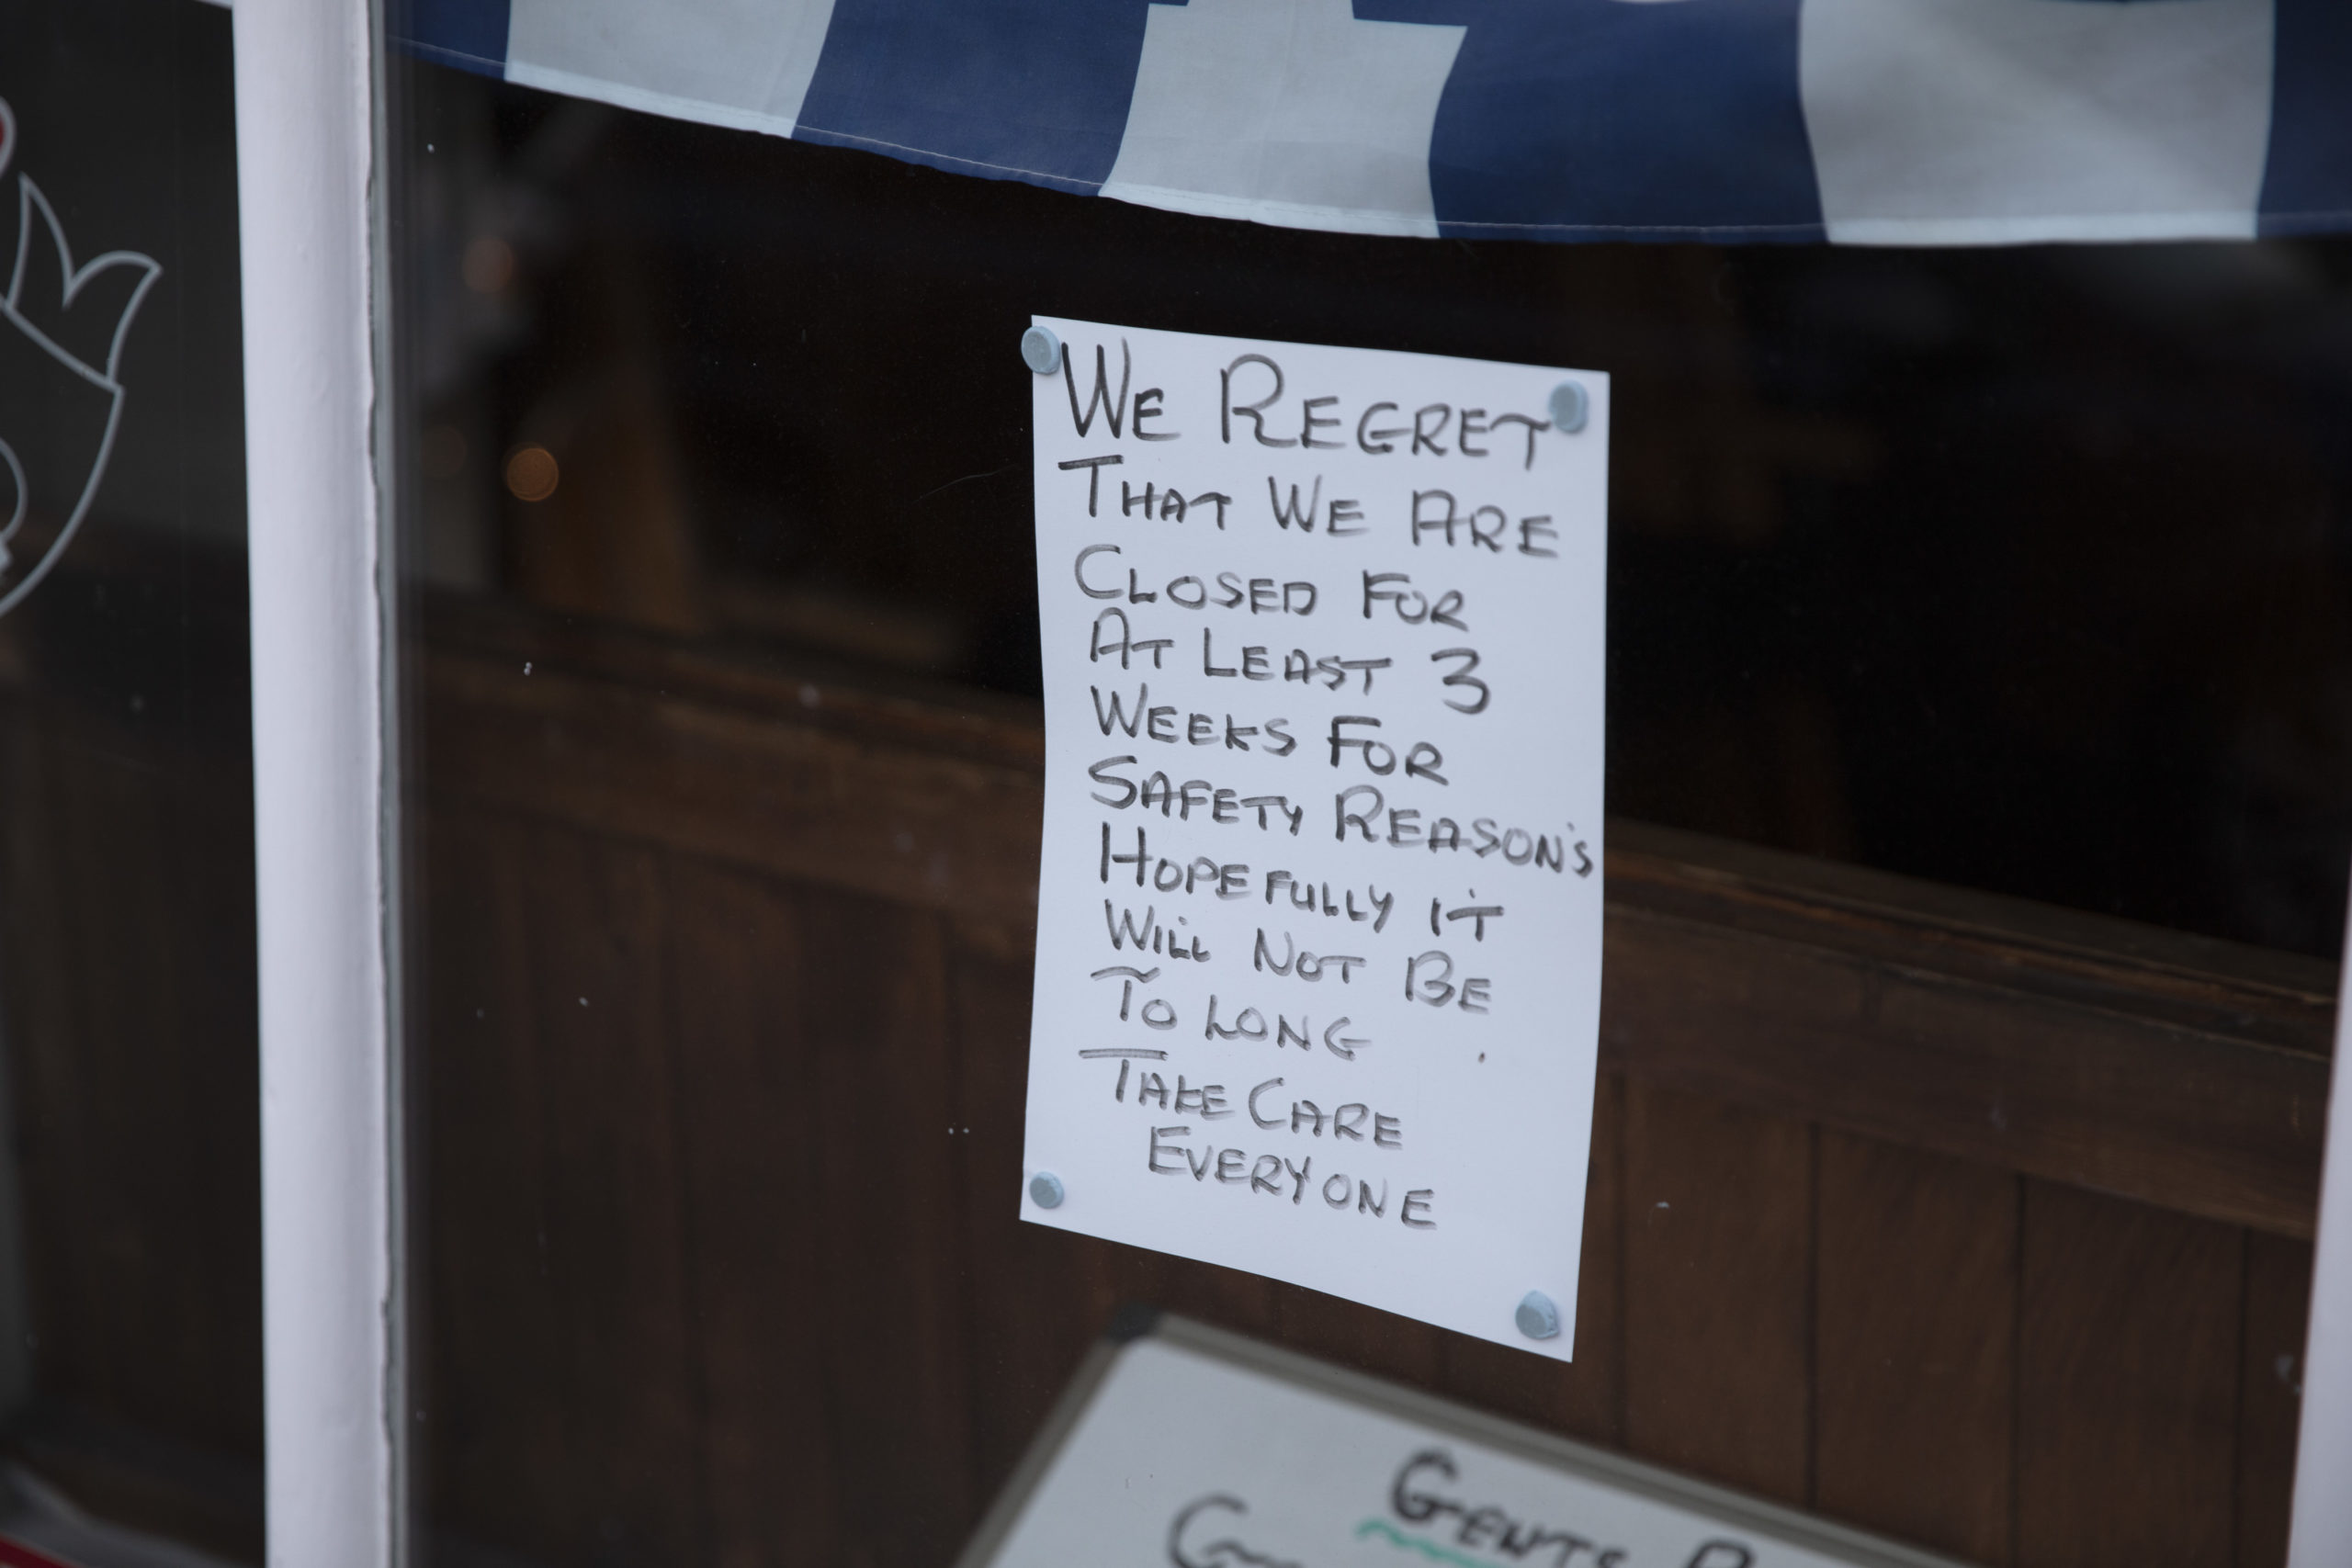 We Regret
That We Are
Closed For
At Least 3
Weeks For
Safety Reason's
Hopefully it
Will Not Be
To Long .
Take Care
Everyone
Gents